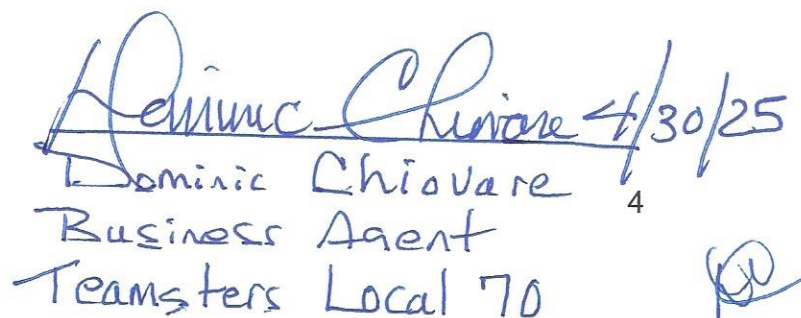 Dominic Chiovare 4/30/25
Dominic Chiovare
4
Business Agent
Teamsters Local 70